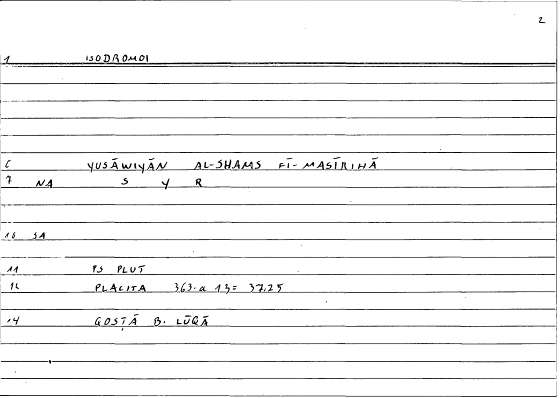 2
1 ISODROMOI
6 YUSĀWIYĀN AL-SHAMS FĪ- MASĪRIHĀ
7 NA S Y R
10 SA
11 PS PLUT
12 PLACITA 363.a 13= 37,25
14 QOSṬĀ B. LŪQĀ